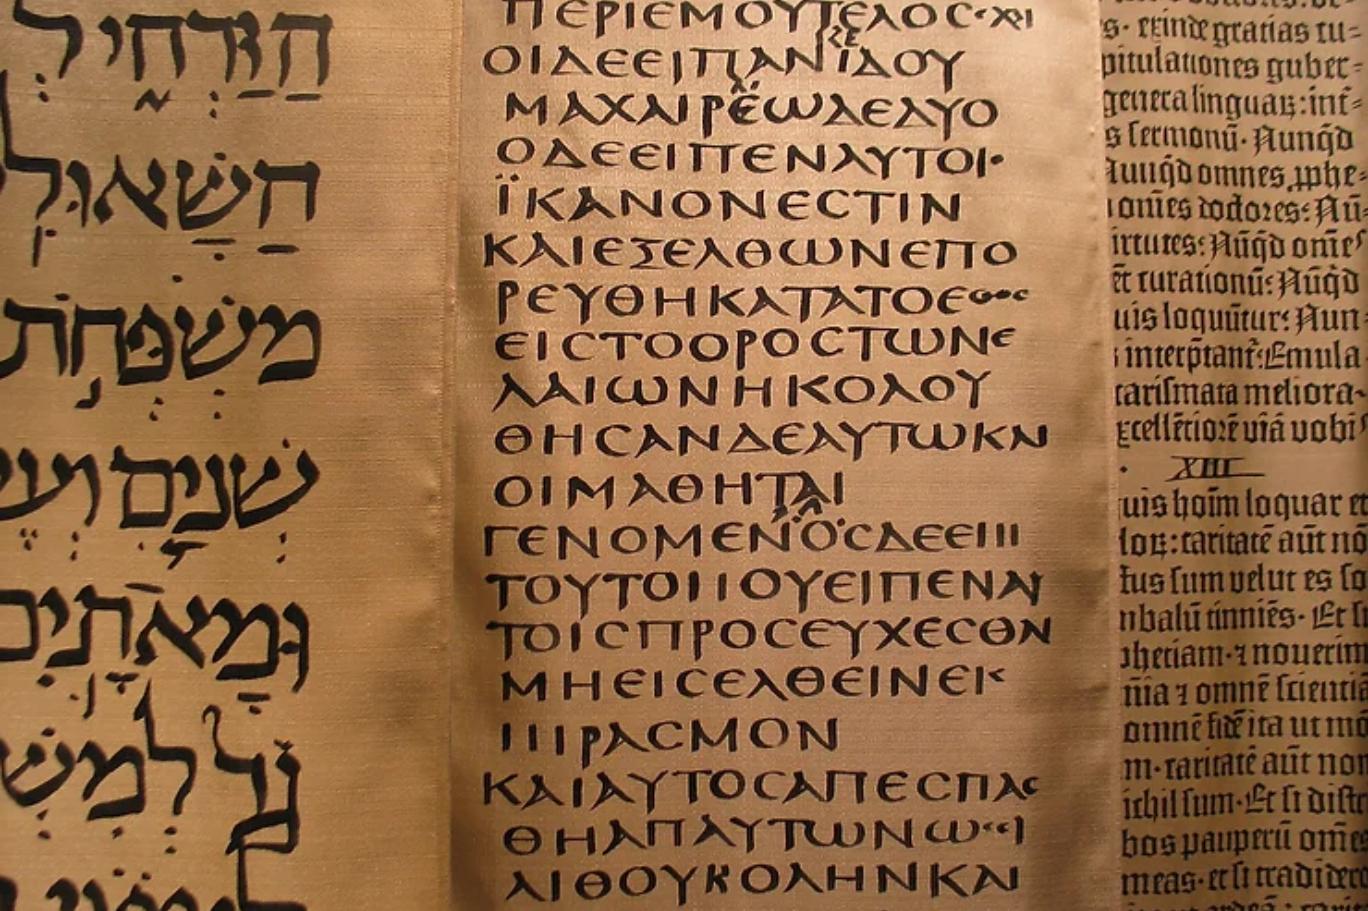 הַזַּרְחִי לְ
הַשָּׁאוּלִ
מִשְׁפְּחֹת
שְׁנַיִם וְעֶ
וּמָאתַיִם
ΠΕΡΙΕΜΟΥΤΕΛΟC
ΟΙΔΕΕΙΠΑΝΪΔΟΥ
ΜΑΧΑΙΡΕΩΔΕΔΥΟ
ΟΔΕΕΙΠΕΝΑΥΤΟΙ·
ΪΚΑΝΟΝΕCΤΙΝ
ΚΑΙΕΞΕΛΘΩΝΕΠΟ
ΡΕΥΘΗΚΑΤΑΤΟΕΘΟC
ΕΙCΤΟΟΡΟCΤΩΝΕ
ΛΑΙΩΝΗΚΟΛΟΥ
ΘΗCΑΝΔΕΑΥΤΩΚΑΙ
ΟΙΜΑΘΗΤΑΙ
ΓΕΝΟΜΕΝΟCΔΕΕΠΙ
ΤΟΥΤΟΠΟΥΕΙΠΕΝΑΥ
ΤΟΙCΠΡΟCΕΥΧΕCΘΑΙ
ΜΗΕΙCΕΛΘΕΙΝΕΙC
ΠΙΡΑCΜΟΝ
ΚΑΙΑΥΤΟCΑΠΕCΠΑC
ΘΗΑΠΑΥΤΩΝΩCΙ
ΛΙΘΟΥΒΟΛΗΝΚΑΙ
s· exinde gratias cu=
pitulationes guber=
genera linguaꝝ: int̄=
s sermonū· Nunq̄d
Nunq̄d omnes ꝓphe=
omēs doctores: Nū
irtutes: Nūq̄d omēs
et curationū: Nūq̄d
uis loquūtur: Nun
interp̄tant̄: Emula
carismata meliora·
xcellētiorē viā vobis
XIII
uis hoīm loquar et
loꝝ: caritatē aūt nō
tus sum velut es so
nbalū tinniēs· Et si
phetiam· ⁊ noverim
nia ⁊ omnē scientiā
omnē fidē ita ut mō
m· caritatē aūt non
ichil sum· Et si distr
bos pauperū omēs
meas· et si tradidero